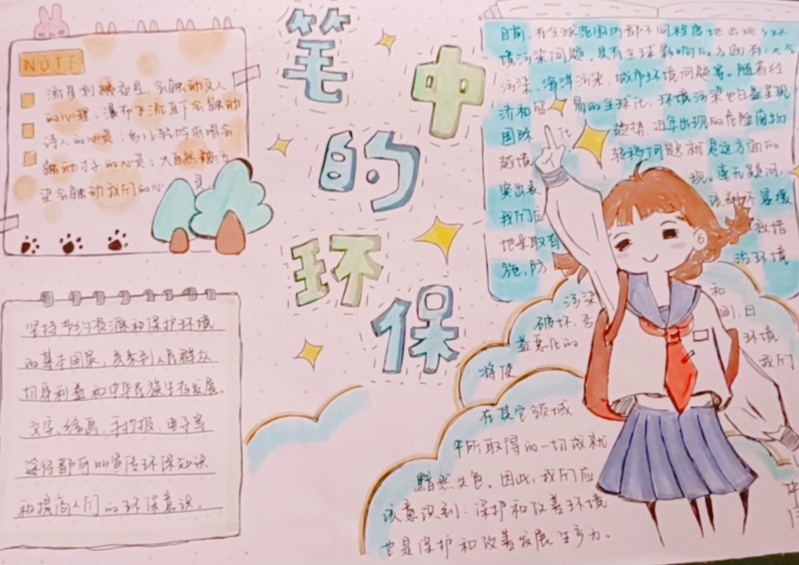 笔中的环保
NOTE
的心理,瀑布飞流直下会触动
诗人的心灵;鸟儿轻巧歌唱会
触动才子的心灵;大自然
会触动我们的心灵
坚持节约资源和保护环境
的基本国策,关系到人民群众
切身利益和中华民族生存发展。
文字、绘画、手抄报、电子等
途径都可以宣传环保知识
和提高人们的环保意识。
目前,在全球范围内都不同程度地出现了环
境污染问题,具有全球影响的方面有:大气
污染、海洋污染、城市环境问题等。随着经
济和贸易的全球化,环境污染也日益呈现
国际化趋势,近年出现的危险废物
越境转移问题就是这方面的
突出表现。毫无疑问,
我们应该刻不容缓
地采取有效措
施,防治环境
污染和
破坏,否则,日
益恶化的环境
将使我们
在其它领域
中所取得的一切成就
黯然失色。因此,我们应
该意识到:保护和改善环境
也是保护和改善发展生产力。